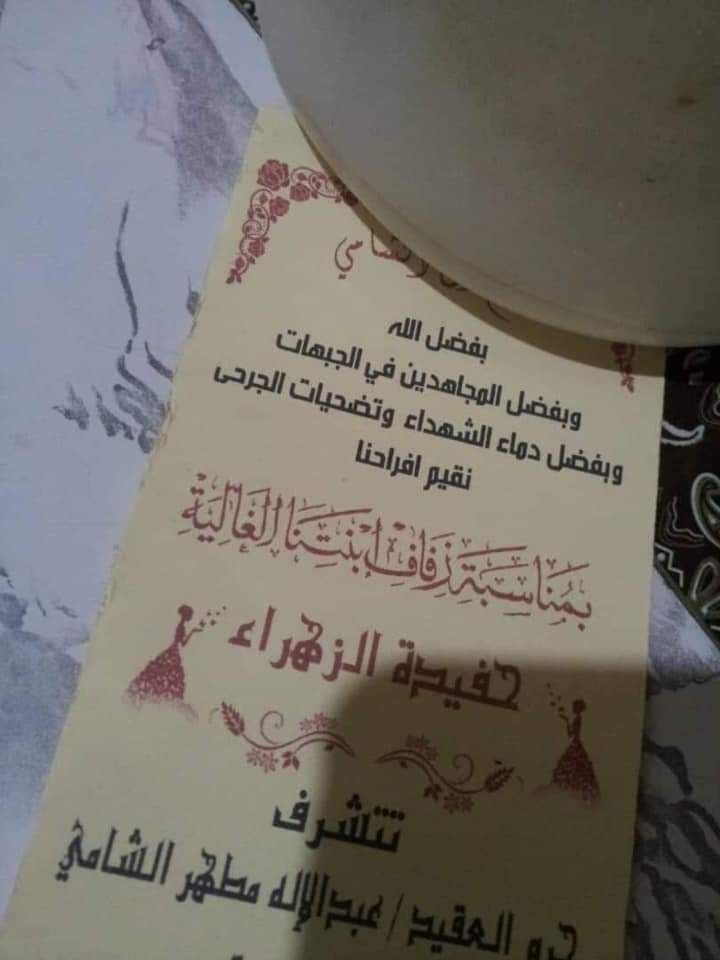 والشامي
بفضل الله
وبفضل المجاهدين في الجبهات
وبفضل دماء الشهداء وتضحيات الجرحى
نقيم افراحنا
بمُناسَبَةِ زِفَافِ ابْنَتِنَا الغَالِيَةِ
حفيدة الزهراء
تتشرف
حرم العقيد / عبدالإله مطهر الشامي